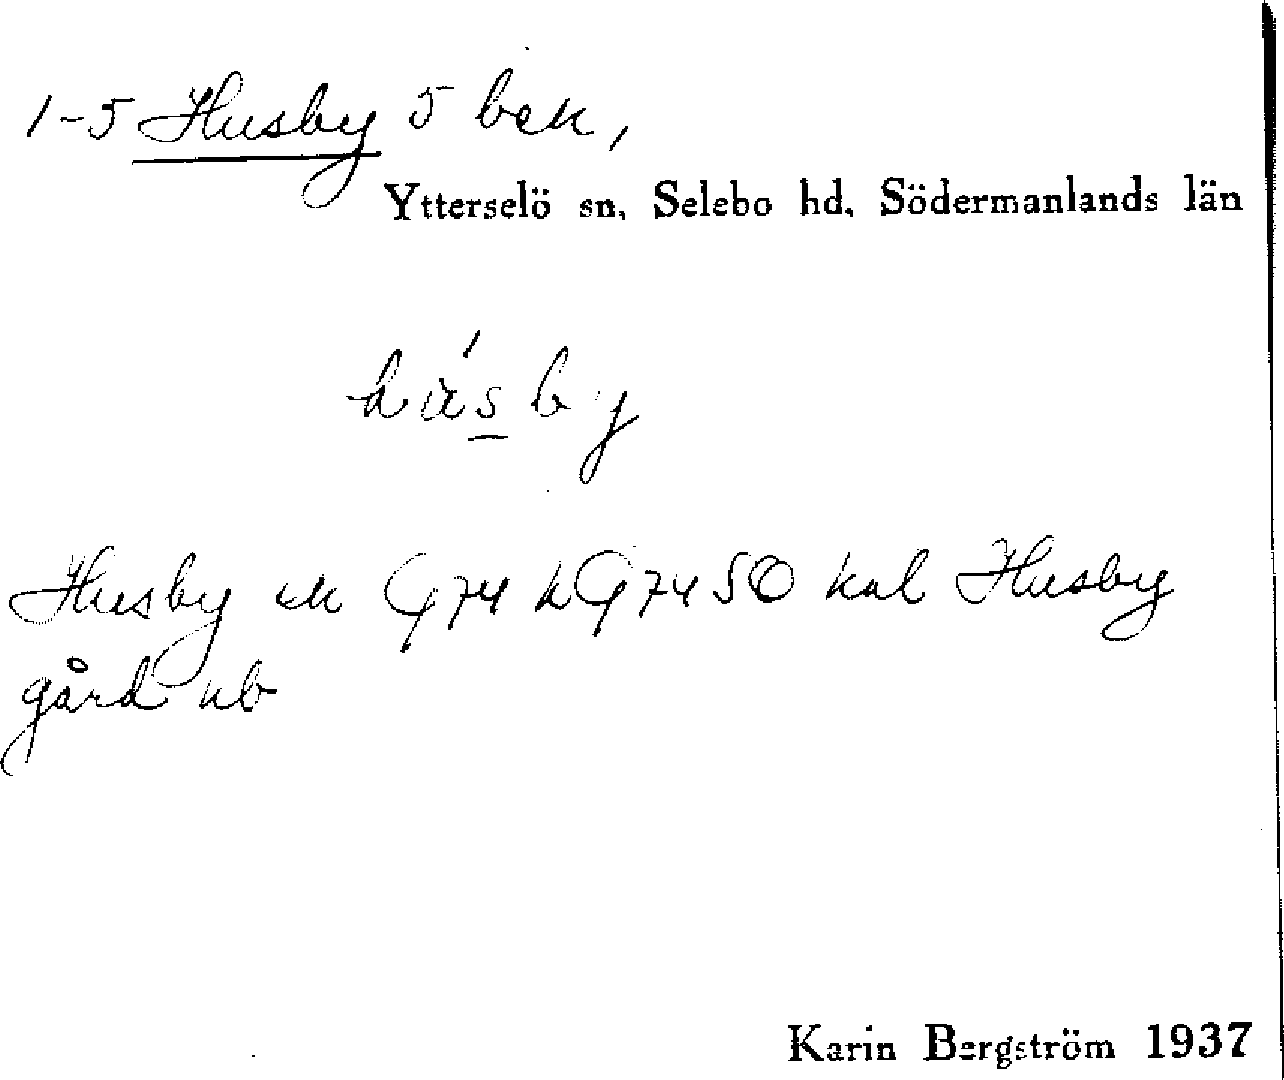 1-5 Husby 5 bek,
Ytterselö sn, Selebo hd, Södermanlands län
hu̇́s̲by
Husby ek G74 kG74 SO kal Husby
gård ub
Karin Bergström 1937